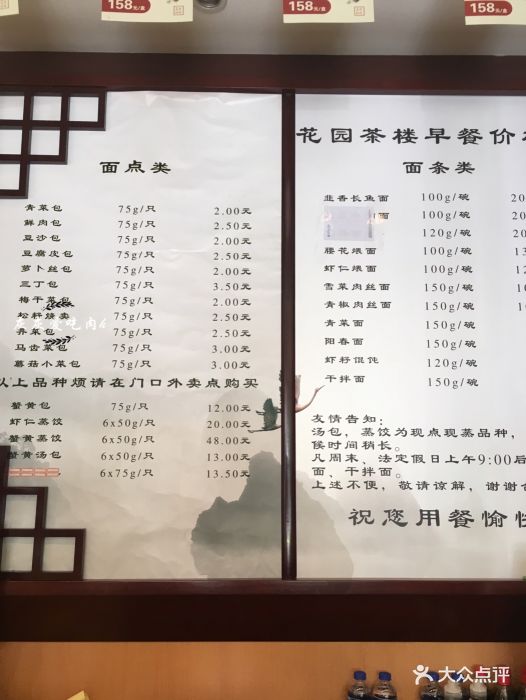 158元/盒
158元/盒
158元/盒
面点类
青菜包 75g/只 2.00元
鲜肉包 75g/只 2.50元
豆沙包 75g/只 2.00元
豆腐皮包 75g/只 2.50元
萝卜丝包 75g/只 2.50元
三丁包 75g/只 3.50元
梅干菜包 75g/只 2.00元
松籽烧卖 75g/只 2.50元
荠菜包 75g/只 2.50元
马齿菜包 75g/只 3.00元
蘑菇小菜包 75g/只 3.00元
以上品种烦请在门口外卖点购买
蟹黄包 75g/只 12.00元
虾仁蒸饺 6x50g/只 20.00元
蟹黄蒸饺 6x50g/只 48.00元
蟹黄汤包 6x50g/只 13.00元
6x75g/只 13.50元
花园茶楼早餐价
面条类
韭香长鱼面 100g/碗 20
面 100g/碗 20
120g/碗 20
腰花煨面 100g/碗 13
虾仁煨面 100g/碗 12
雪菜肉丝面 150g/碗
青椒肉丝面 150g/碗
青菜面 150g/碗
阳春面 150g/碗
虾籽馄饨 120g/碗
干拌面 150g/碗
友情告知:
汤包,蒸饺为现点现蒸品种,
候时间稍长。
凡周末、法定假日上午9:00后
面、干拌面。
上述不便,敬请谅解,谢谢合
祝您用餐愉快
大众点评